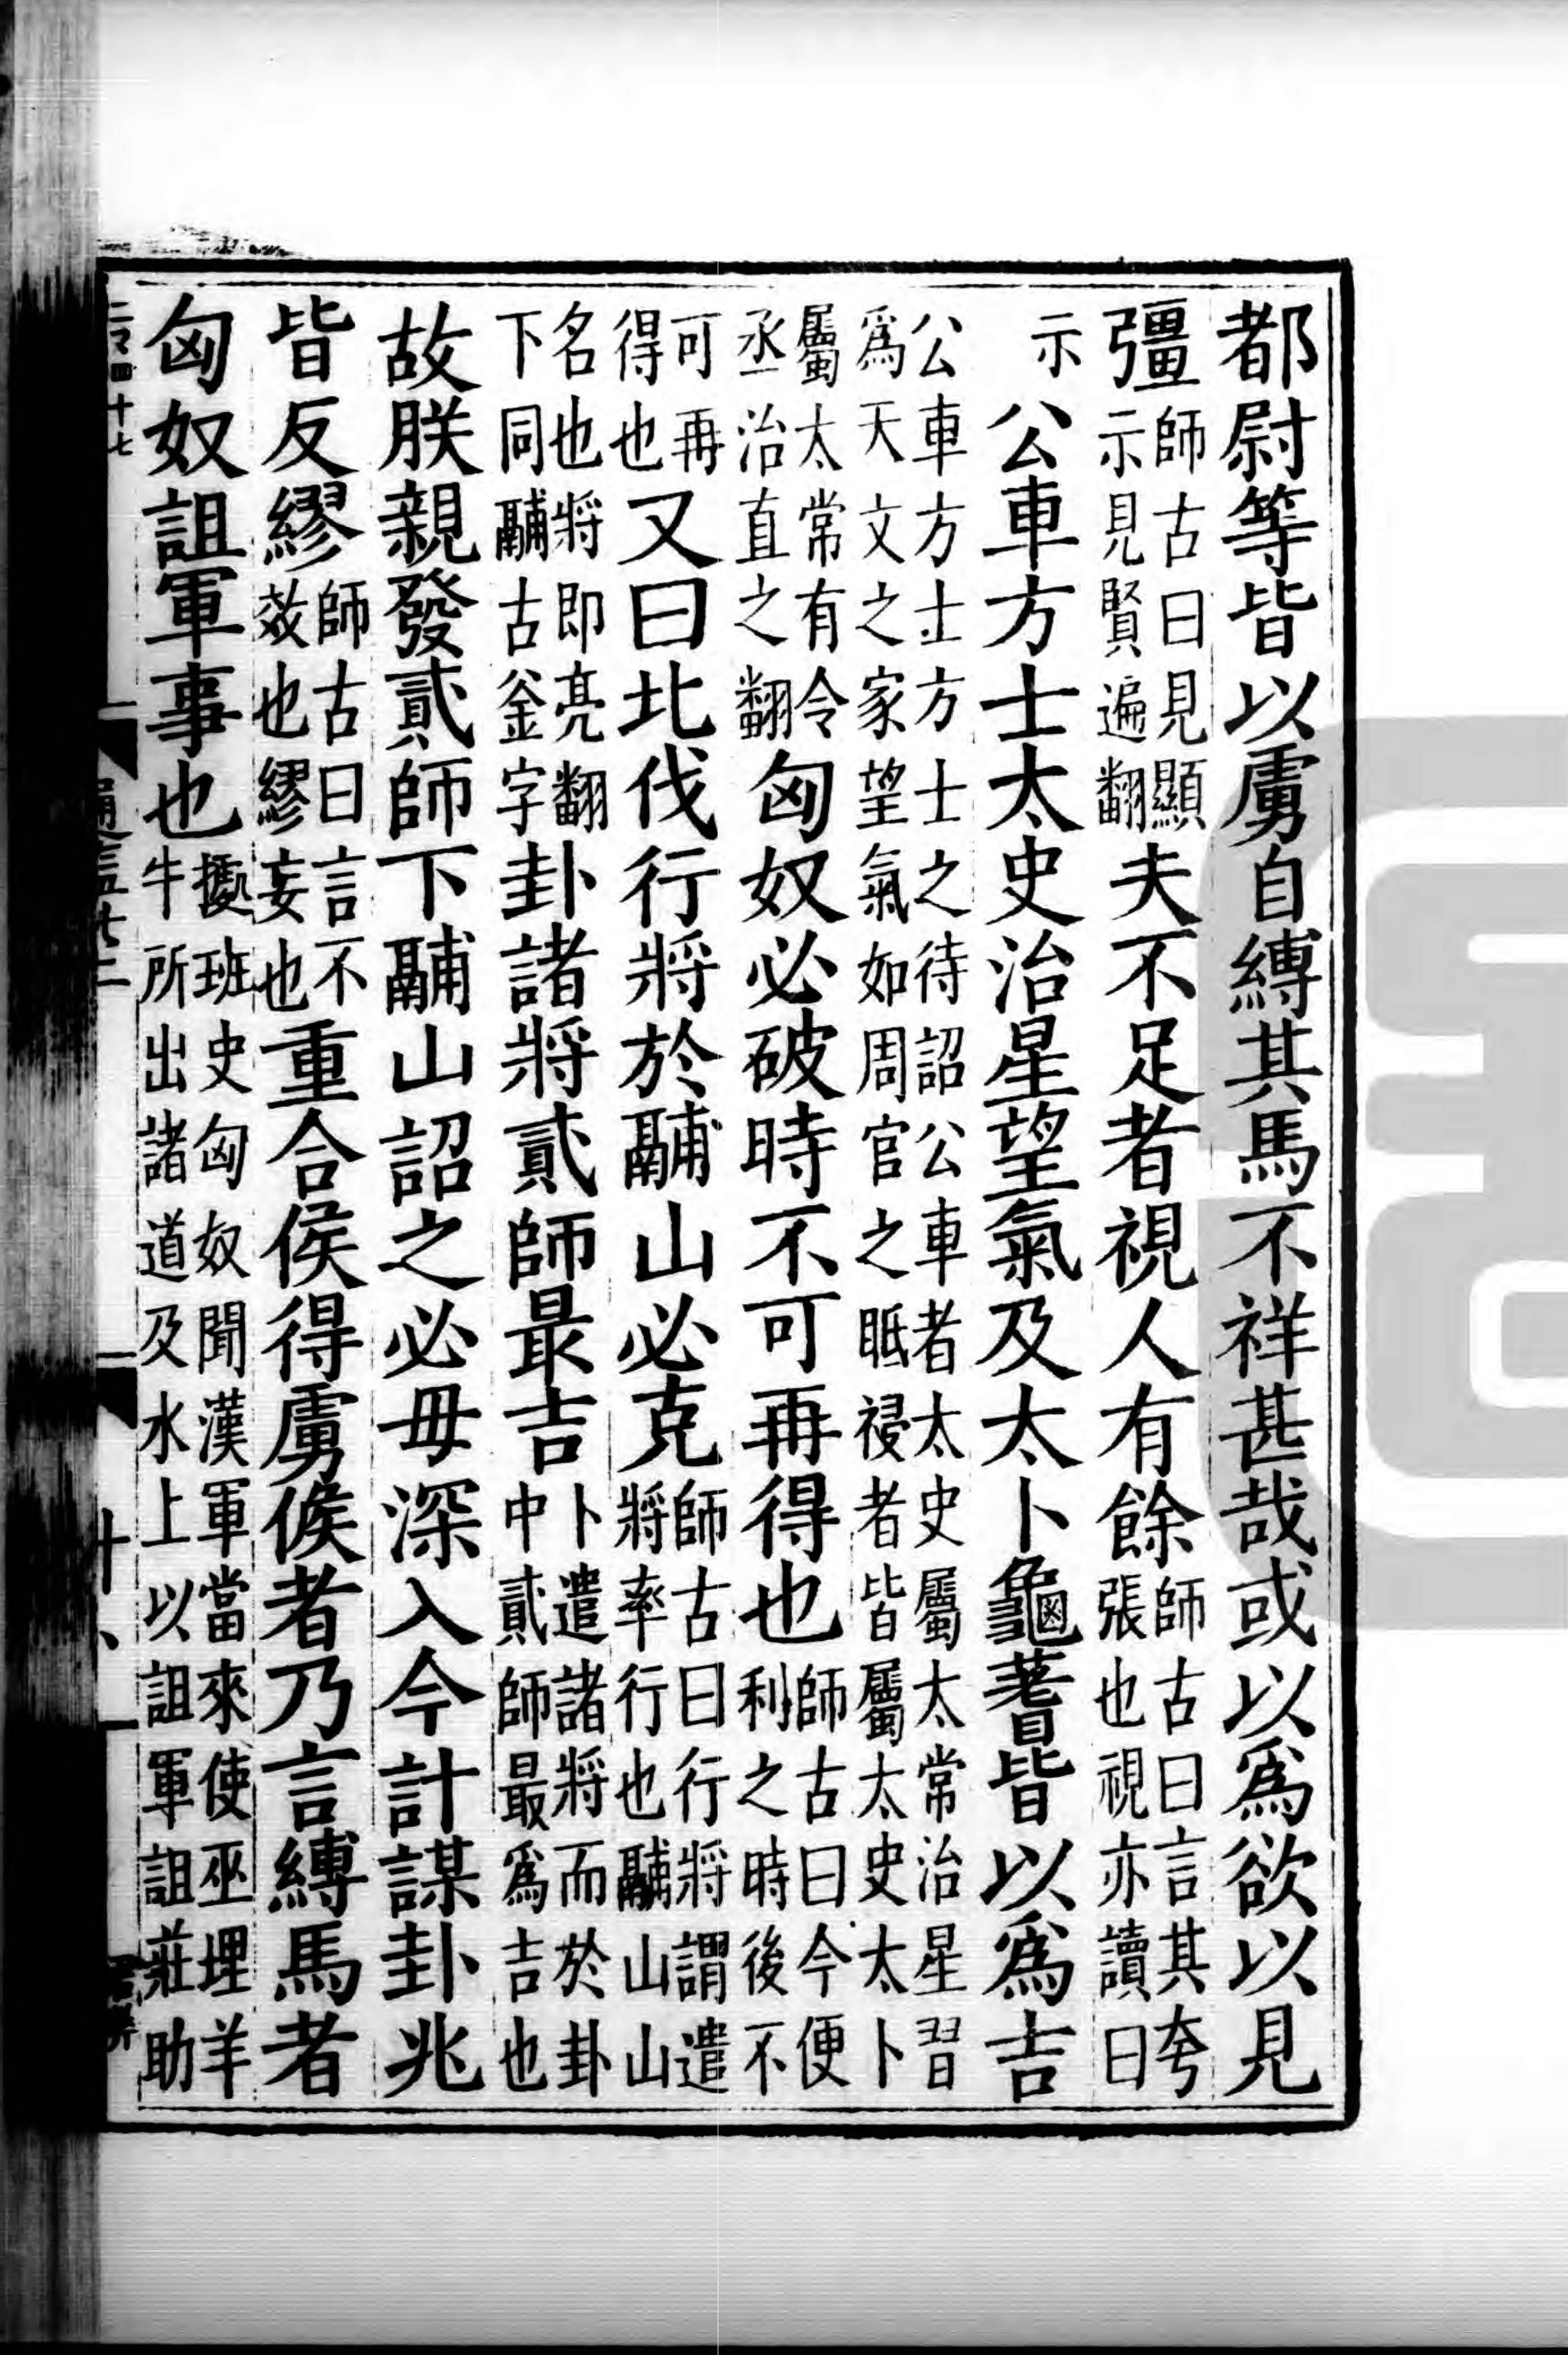 都尉等皆以虜自縛其馬不祥甚哉或以爲欲以見
彊師古曰見顯示見賢遍翻夫不足者視人有餘師古曰言其夸張也視亦讀曰
示公車方士太史治星望氣及太卜龜蓍皆以爲吉
公車方士方士之待詔公車者太史屬太常治星習
爲天文之家望氣如周官之眡祲者皆屬太史太卜
屬太常有令丞治直之翻匈奴必破時不可再得也師古曰今便利之時後不
可再得也又曰北伐行將於鬴山必克師古曰行將謂遣將率行也鬴山山
名也將即亮翻下同鬴古釜字卦諸將貳師最吉卜遣諸將而於卦中貳師最爲吉也
故朕親發貳師下鬴山詔之必毋深入今計謀卦兆
皆反繆師古曰言不效也繆妄也重合侯得虜候者乃言縛馬者
匈奴詛軍事也據班史匈奴聞漢軍當來使巫埋羊牛所出諸道及水上以詛軍詛莊助